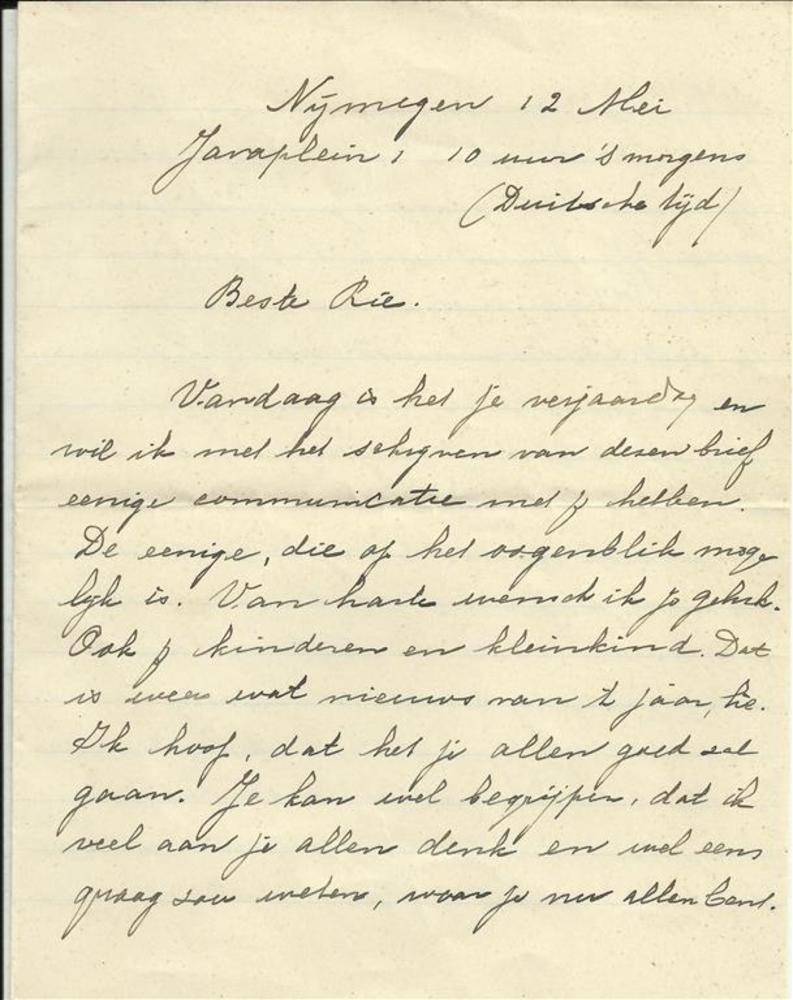 Nijmegen 12 Mei
Javaplein 1 10 uur 's morgens
(Duitsche tijd)
Beste Rie.
Vandaag is het je verjaardag en
wil ik met het schrijven van dezen brief
eenige communicatie met je hebben.
De eenige, die op het oogenblik moge
lijk is. Van harte wensch ik je geluk.
Ook je kinderen en kleinkind. Dat
is weer wat nieuws van 't jaar, hè.
Ik hoop, dat het je allen goed zal
gaan. Je kan wel begrijpen, dat ik
veel aan je allen denk en wel eens
graag zou weten, waar je nu allen bent.